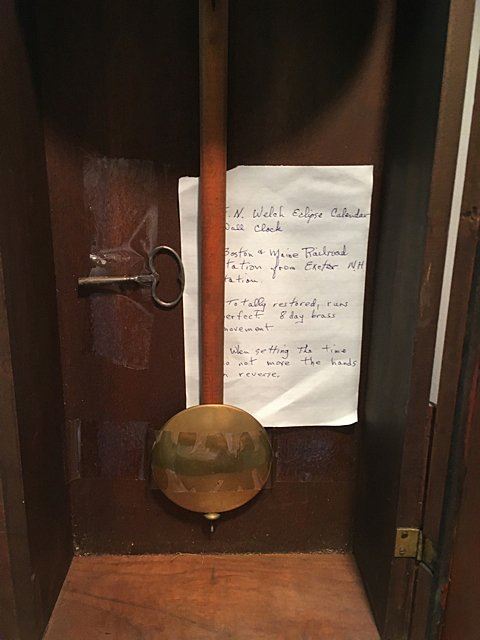 .N. Welch Eclipse Calendar
all Clock
Boston & Maine Railroad
tation from Exeter NH
tation.
Totally restored, runs
erfect 8 day brass
ovement
When setting the time
o not move the hands
n reverse.